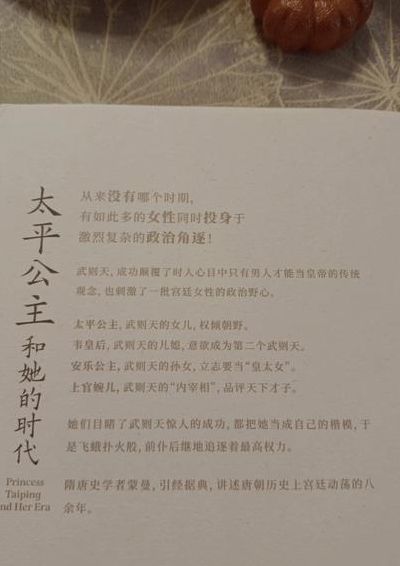 太平公主和她的时代
Princess
Taiping
nd Her Era
从来没有哪个时期，
有如此多的女性同时投身于
激烈复杂的政治角逐！
武则天，成功颠覆了时人心目中只有男人才能当皇帝的传统
观念，也刺激了一批宫廷女性的政治野心。
太平公主，武则天的女儿，权倾朝野。
韦皇后，武则天的儿媳，意欲成为第二个武则天。
安乐公主，武则天的孙女，立志要当“皇太女”。
上官婉儿，武则天的“内宰相”，品评天下才子。
她们目睹了武则天惊人的成功，都把她当成自己的楷模，于
是飞蛾扑火般，前仆后继地追逐着最高权力。
隋唐史学者蒙曼，引经据典，讲述唐朝历史上宫廷动荡的八
余年。